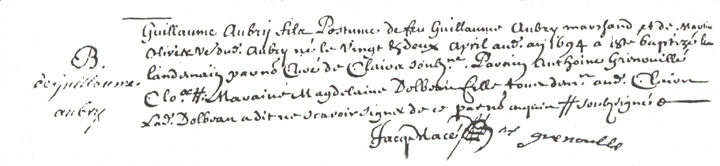 B.
de guillaume
aubry
Guillaume Aubry fils Postume de feu Guillaume Aubry marchand et de
Olivier veduᵉ Aubry né le vingt & deux April aud. an 1694 a été baptizé le
landemain par nos Curé de soubzⁿᵉ. Parain Anthoine Grenouillé
Maraine Magdelaine Dolbeau fille tous den.ᵗ aud.
Lad. Dolbeau a dit ne scavoir signer de ce par nos enquise # soubzsignés
Jacq. Macé grenoille